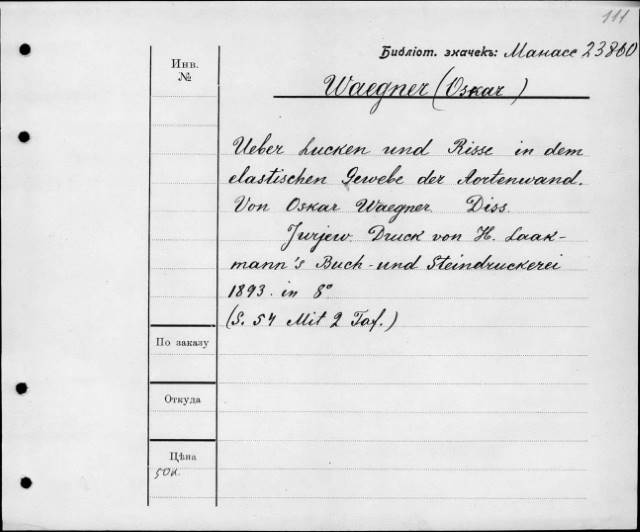 111
Библіот. значекъ: Манасе 23860
Инв.
№
Waegner (Oskar)
Ueber Lucken und Risse in dem
elastischen Gewebe der Aortenwand.
Von Oskar Waegner. Diss.
Jurjew. Druck von H. Laak-
mann's Buch- und Steindruckerei
1893. in 8°
(S. 54 Mit 2 Taf.)
По заказу
Откуда
Цѣна
50к.